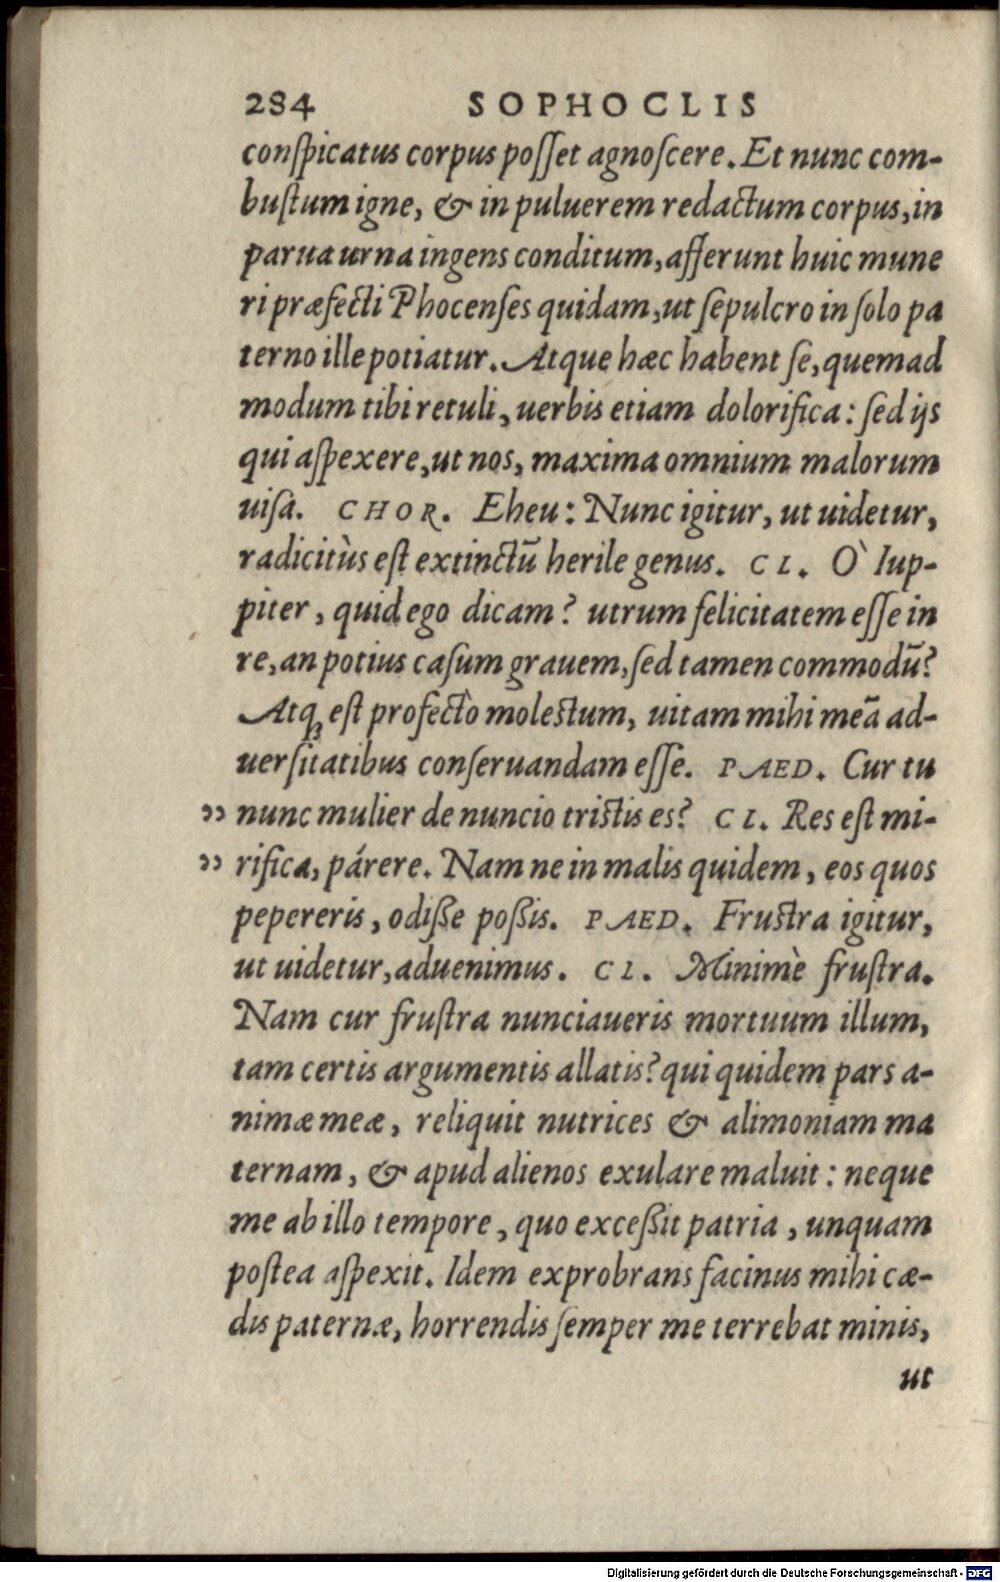 284 SOPHOCLIS
conſpicatus corpus poſſet agnoſcere. Et nunc com-
buſtum igne, & in puluerem redactum corpus, in
parua urna ingens conditum, afferunt huic mune
ri præfecti Phocenſes quidam, ut ſepulcro in ſolo pa
terno ille potiatur. Atque hæc habent ſe, quemad
modum tibi retuli, uerbis etiam dolorifica: ſed ijs
qui aſpexere, ut nos, maxima omnium malorum
uiſa. CHOR. Eheu: Nunc igitur, ut uidetur,
radicitùs eſt extinctū herile genus. CL. O` Iup-
piter, quid ego dicam? utrum felicitatem eſſe in
re, an potius caſum grauem, ſed tamen commodū?
Atqꝫ eſt profectò moleſtum, uitam mihi meā ad-
uerſitatibus conſeruandam eſſe. PAED. Cur tu
„ nunc mulier de nuncio triſtis es? CL. Res eſt mi-
„ rifica, párere. Nam ne in malis quidem, eos quos
pepereris, odiße poßis. PAED. Fruſtra igitur,
ut uidetur, aduenimus. CL. Minimè fruſtra.
Nam cur fruſtra nunciaueris mortuum illum,
tam certis argumentis allatis? qui quidem pars a-
nimæ meæ, reliquit nutrices & alimoniam ma
ternam, & apud alienos exulare maluit: neque
me ab illo tempore, quo exceßit patria, unquam
poſtea aſpexit. Idem exprobrans facinus mihi cæ-
dis paternæ, horrendis ſemper me terrebat minis,
ut
Digitalisierung gefördert durch die Deutsche Forschungsgemeinschaft - DFG